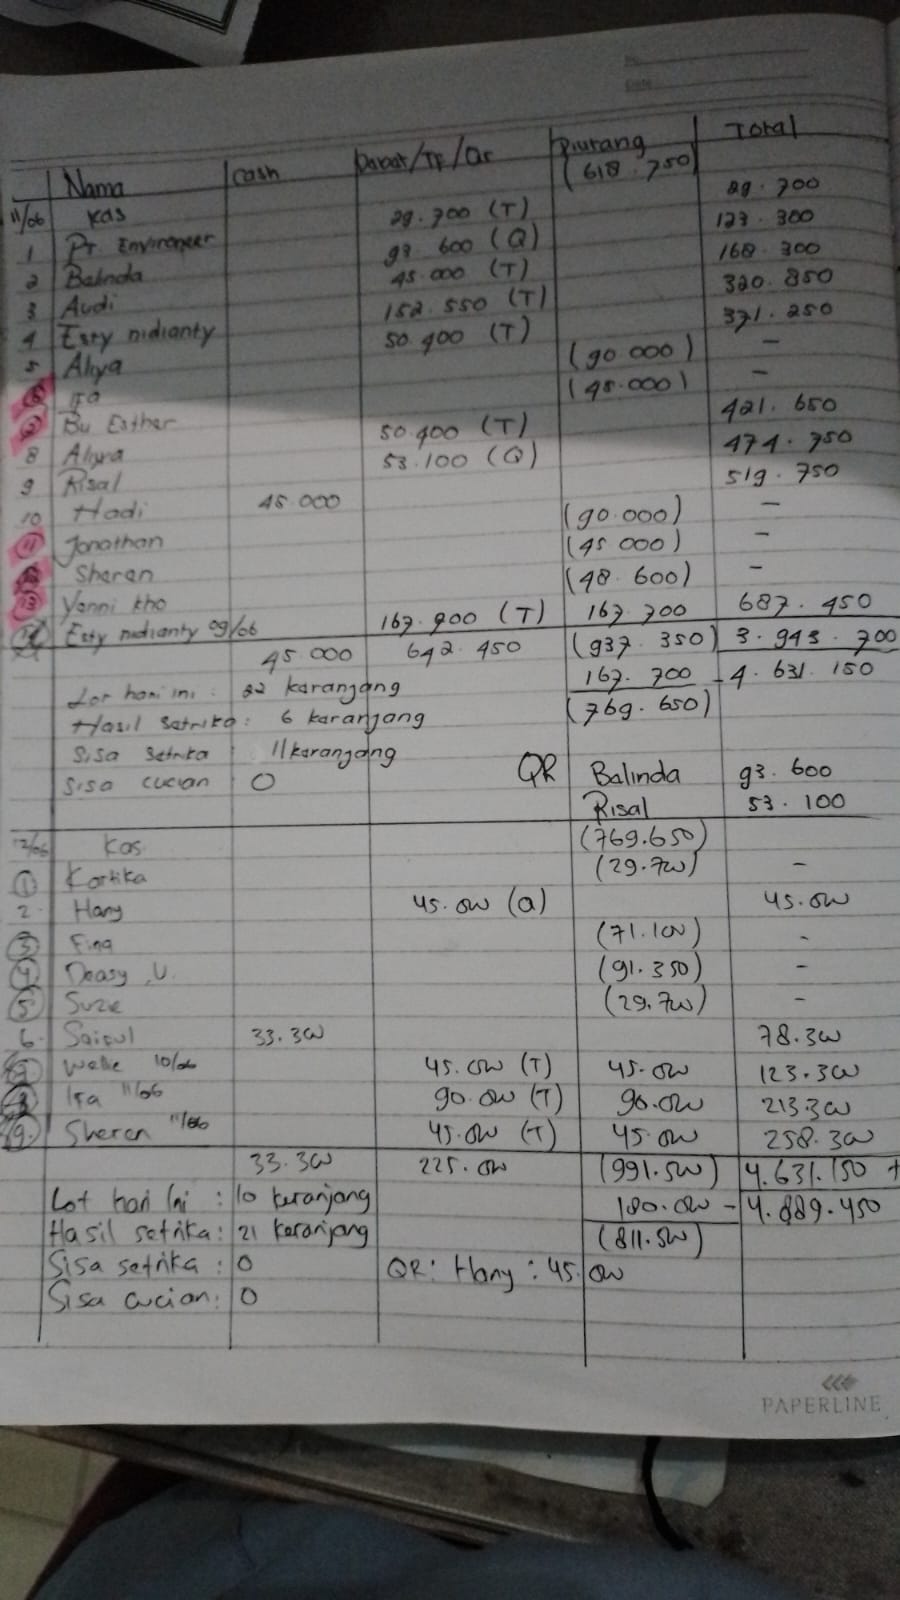 No.
Date
Nama Cash Debet/TF/Qr Piutang Total
11/06 Kas (618.750)
1 Pt. Environeer 29.700 (T) 29.700
2 Balinda 93.600 (Q) 123.300
3 Audi 45.000 (T) 168.300
4 Esty nidianty 152.550 (T) 320.850
5 Aliya 50.400 (T) 371.250
6 Ira (90.000) -
7 Bu Esther (45.000) -
8 Aliyra 50.400 (T) 421.650
9 Risal 53.100 (Q) 474.750
10 Hadi 45.000 519.750
11 Jonathan (90.000) -
12 Sheren (45.000) -
13 Yenni kho (48.600) -
14 Esty nidianty 09/06 167.900 (T) 167.700 687.450
45.000 642.450 (937.350) 3.943.700
Lot hari ini : 22 karanjang 167.700 - 4.631.150
Hasil Setrika : 6 karanjang (769.650)
Sisa Setrika : 11 karanjang
Sisa cucian : 0 QR Balinda 93.600
Risal 53.100
12/06 Kas (769.650)
1 Kartika (29.700) -
2. Hany 45.000 (Q) 45.000
3 Fina (71.100) -
4. Deasy .U. (91.350) -
5 Suzie (29.700) -
6. Saiful 33.300 78.300
7 Welie 10/06 45.000 (T) 45.000 123.300
8 Ira 11/06 90.000 (T) 90.000 213.300
9. Sheren 11/06 45.000 (T) 45.000 258.300
33.300 225.000 (991.500) 4.631.150 +
Lot hari Ini : 10 keranjang 180.000 - 4.889.450
Hasil setrika : 21 keranjang (811.500)
Sisa setrika : 0 QR : Hany : 45.000
Sisa cucian : 0
PAPERLINE